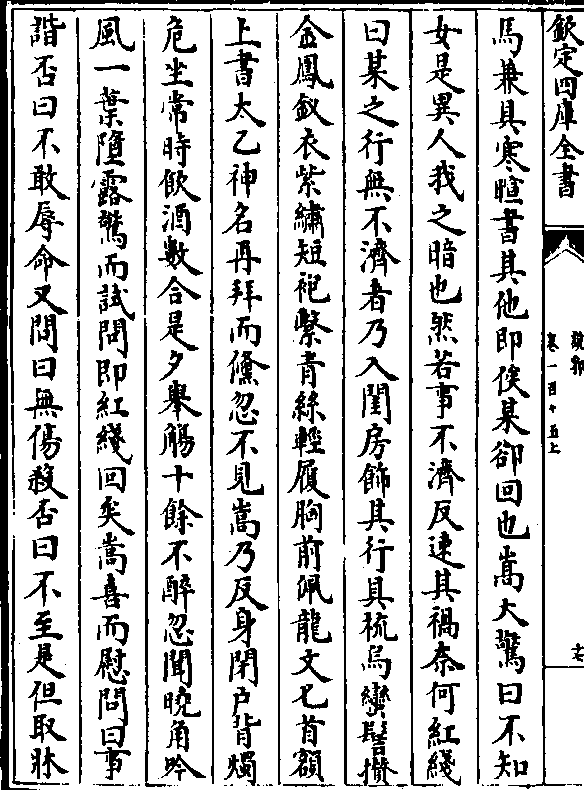 欽定四庫全書
說郛
卷一百十五上
十七
馬兼具寒暄書其他即俟某卻回也嵩大驚曰不知
女是異人我之暗也然若事不濟反速其禍奈何紅綫
曰某之行無不濟者乃入闺房飾其行具梳烏蠻髻攢
金鳳釵衣紫繡短袍繫青絲輕履胸前佩龍文匕首額
上書太乙神名再拜而儵忽不見嵩乃反身閉户背燭
危坐常時飲酒數合是夕舉觴十餘不醉忽聞曉角吟
風一葉墮露驚而試問即紅綫回矣嵩喜而慰問曰事
諧否曰不敢辱命又問曰無傷殺否曰不至是但取牀